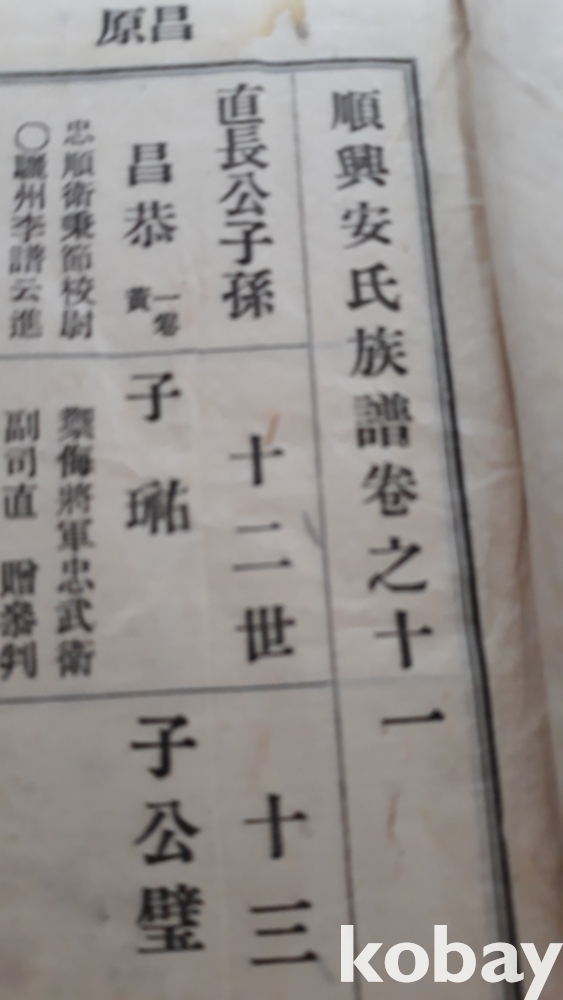 昌原
順興安氏族譜卷之十一
直長公子孫
十二世
十三
昌恭
一零
黃
子
子公璧
忠順衛秉節校尉
禦侮將軍忠武衛
〇驪州李譜云進
副司直 贈參判
kobay